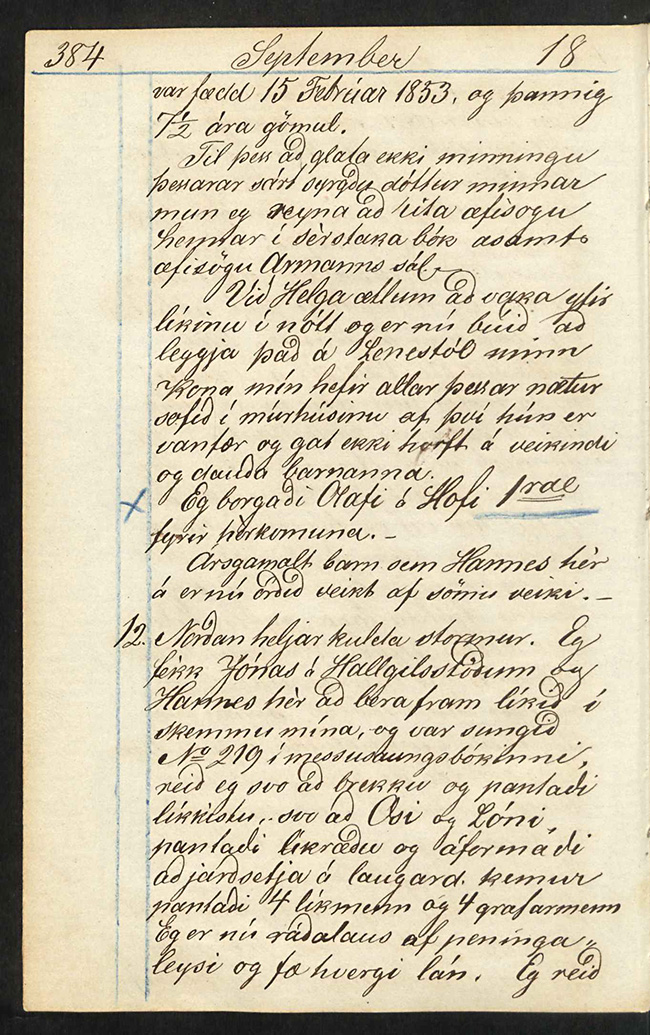 384 September 18
var fædd 15 Februar 1853, og þannig
7½ ára gömul.
Til þess að glata ekki minningu
þessarar sárt syrgðu dóttur minnar
mun eg reyna að rita æfisogu
hennar í sèrstaka bók asamt
æfisögu Armanns sál.
Við Helga ætlum að vaka yfir
líkinu í nótt og er nú búið að
leggja það á Lenestól minn
Kona mín hefir allar þessar nætur
sofið í múrhúsinu af því hún er
vanfær og gat ekki horft á veikindi
og dauða barnanna.
X Eg borgaði Olafi á Hofi 1 rdl
fyrir hèrkomuna. –
Arsgamalt barn sem Hannes hèr
á er nú orðið veikt af sömu veiki. –
12. Norðan heljar kulda stormur. Eg
fèkk Jónas á Hallgilsstöðum og
Hannes hèr að bera fram líkið í
skemmu mína, og var sungið
No 219 í messusaungsbókinni,
reið eg svo að brekku og pantaði
líkkistu, svo að Osi og Lóni,
pantaði líkræðu og áformaði
að jarðsetja á laugard. kemur
pantaði 4 líkmenn og 4 grafarmenn
Eg er nú ráðalaus af peninga„
leysi og fæ hvergi lán. Eg reið